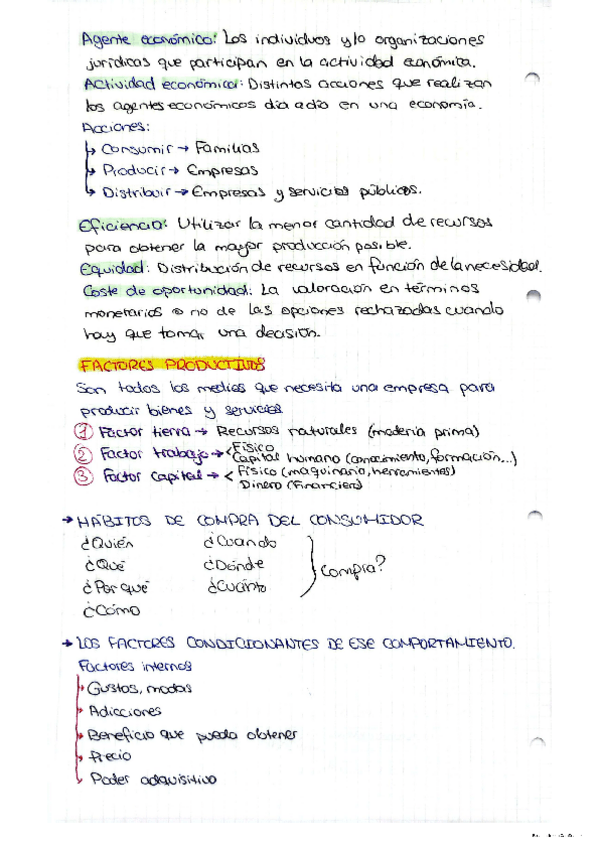 Agente económico: Los individuos y/o organizaciones
jurídicas que participan en la actividad económica.
Actividad económica: Distintas acciones que realizan
los agentes económicos día a día en una economía.
Acciones:
↳ Consumir → Familias
↳ Producir → Empresas
↳ Distribuir → Empresas y servicios públicos.
Eficiencia: Utilizar la menor cantidad de recursos
para obtener la mayor producción posible.
Equidad: Distribución de recursos en función de la necesidad.
Coste de oportunidad: La valoración en términos
monetarios o no de las opciones rechazadas cuando
hay que tomar una decisión.
FACTORES PRODUCTIVOS
Son todos los medios que necesita una empresa para
producir bienes y servicios
① Factor tierra → Recursos naturales (materia prima)
② Factor trabajo → < Físico
Capital humano (conocimiento, formación...)
③ Factor capital → < Físico (maquinaria, herramientas)
Dinero (Financiero)
→ HÁBITOS DE COMPRA DEL CONSUMIDOR
¿Quién ¿Cuando
¿Qué ¿Dónde
¿Por qué ¿Cuánto
¿Cómo
compra?
→ LOS FACTORES CONDICIONANTES DE ESE COMPORTAMIENTO.
Factores internos
↳ Gustos, modas
↳ Adicciones
↳ Beneficio que pueda obtener
↳ Precio
↳ Poder adquisitivo